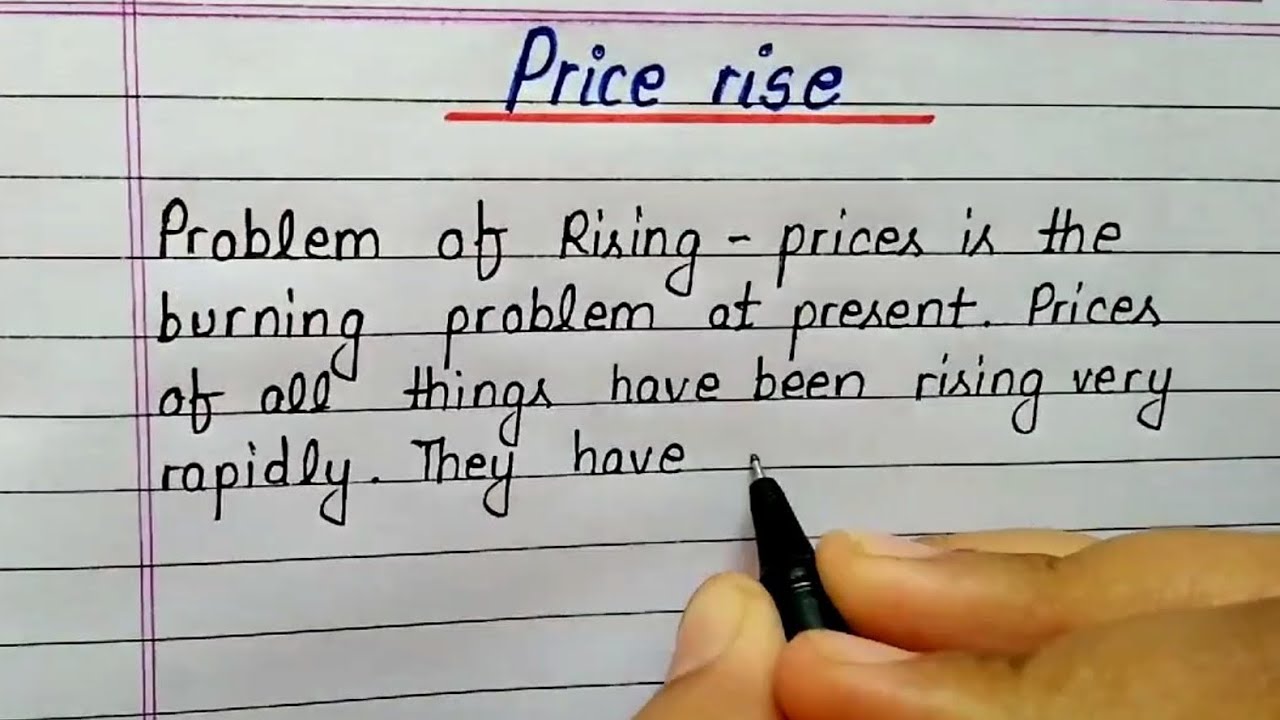 Price rise
Problem of Rising - prices is the
burning problem at present. Prices
of all things have been rising very
rapidly. They have